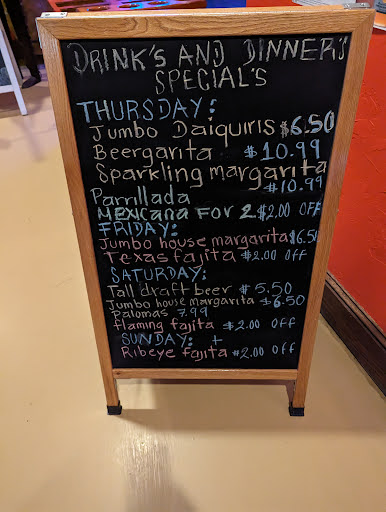 DRINK'S AND DINNER'S
SPECIAL'S
THURSDAY:
Jumbo Daiquiris $6.50
Beergarita $10.99
Sparkling margarita
$10.99
Parrillada
MEXICANA FOR 2 $2.00 OFF
FRIDAY:
Jumbo house margarita $6.50
Texas fajita $2.00 OFF
SATURDAY:
Tall draft beer $5.50
Jumbo house margarita $6.50
Palomas 7.99
flaming fajita $2.00 OFF
SUNDAY: +
Ribeye fajita $2.00 OFF